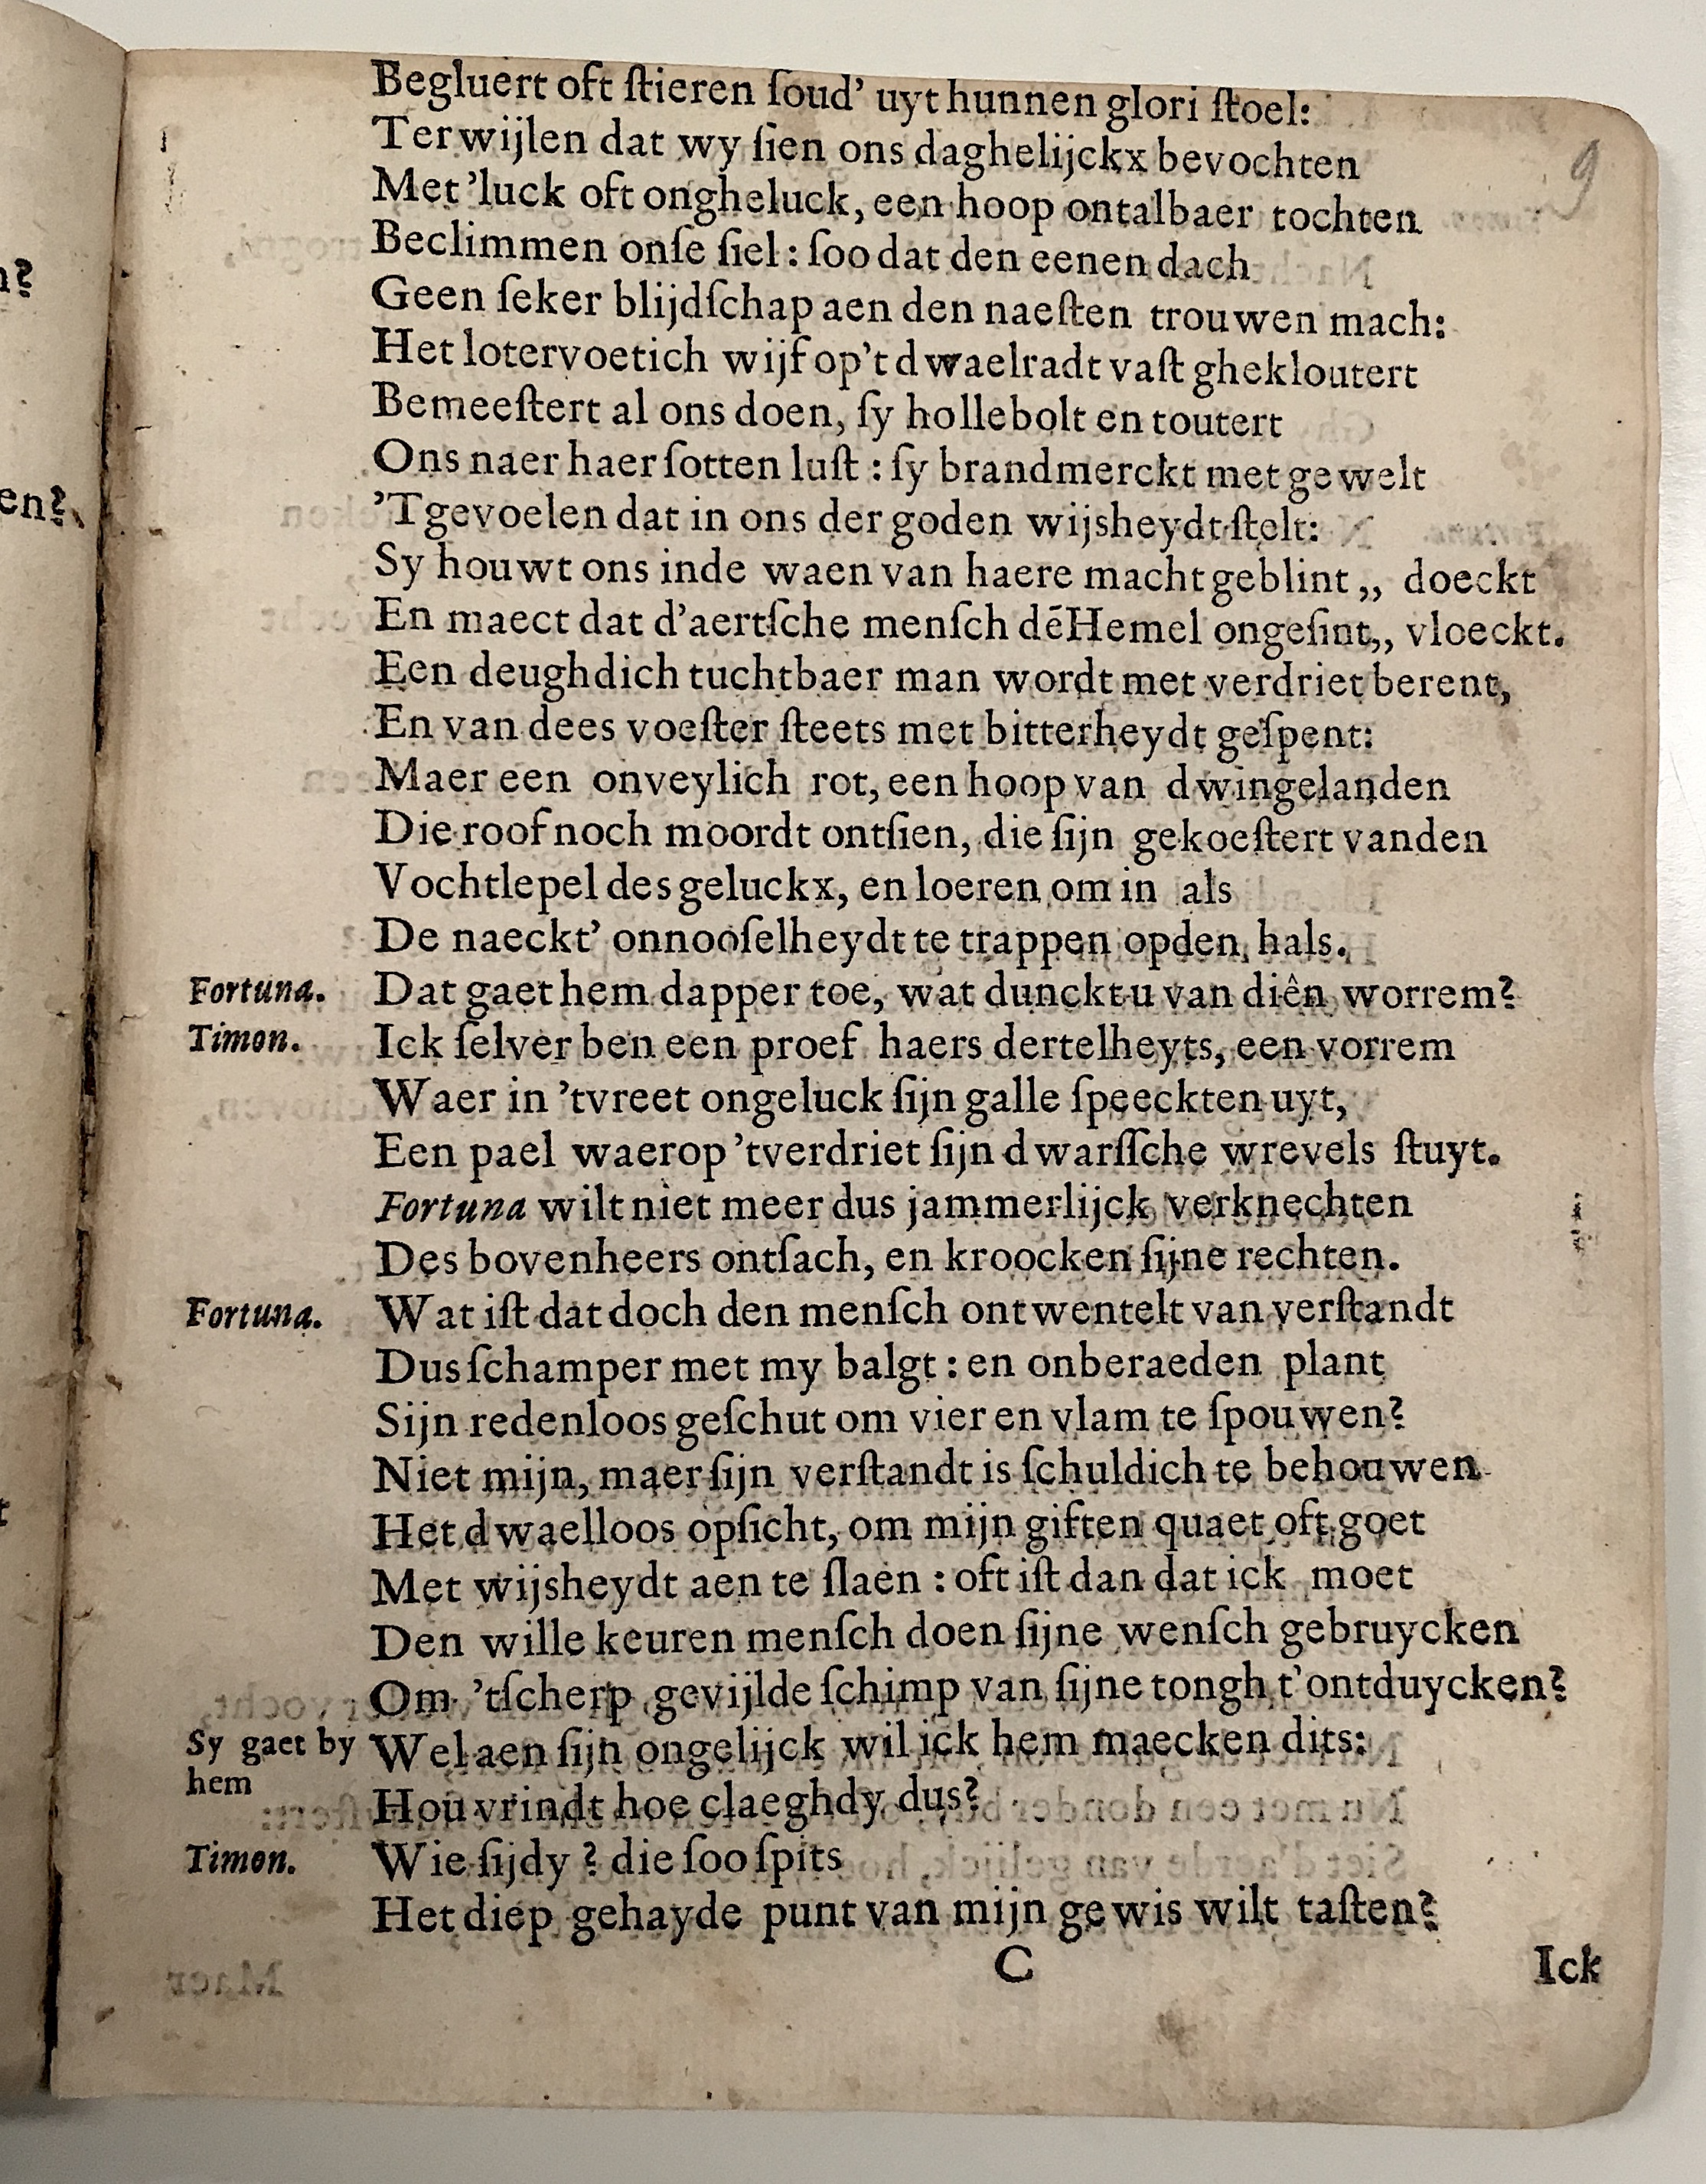 9
Begluert oft ſtieren ſoud' uyt hunnen glori ſtoel:
Terwijlen dat wy ſien ons daghelijckx bevochten
Met 'luck oft ongheluck, een hoop ontalbaer tochten
Beclimmen onſe ſiel: ſoo dat den eenen dach
Geen ſeker blijdſchap aen den naeſten trouwen mach:
Het lotervoetich wijf op't dwaelradt vaſt ghekloutert
Bemeeſtert al ons doen, ſy hollebolt en toutert
Ons naer haer ſotten luſt: ſy brandmerckt met gewelt
'Tgevoelen dat in ons der goden wijsheydt ſtelt:
Sy houwt ons inde waen van haere macht geblint,, doeckt
En maect dat d'aertſche menſch dē Hemel ongeſint,, vloeckt.
Een deughdich tuchtbaer man wordt met verdriet berent,
En van dees voeſter ſteets met bitterheydt geſpent:
Maer een onveylich rot, een hoop van dwingelanden
Die roof noch moordt ontſien, die ſijn gekoeſtert vanden
Vochtlepel des geluckx, en loeren om in als
De naeckt' onnooſelheydt te trappen opden hals.
Fortuna. Dat gaet hem dapper toe, wat dunckt u van diên worrem?
Timon. Ick ſelver ben een proef haers dertelheyts, een vorrem
Waer in 'tvreet ongeluck ſijn galle ſpeeckten uyt,
Een pael waerop 'tverdriet ſijn dwarſſche wrevels ſtuyt.
Fortuna wilt niet meer dus jammerlijck verknechten
Des bovenheers ontſach, en kroocken ſijne rechten.
Fortuna. Wat iſt dat doch den menſch ontwentelt van verſtandt
Dus ſchamper met my balgt: en onberaeden plant
Sijn redenloos geſchut om vier en vlam te ſpouwen?
Niet mijn, maer ſijn verſtandt is ſchuldich te behouwen
Het dwaelloos opſicht, om mijn giften quaet oft goet
Met wijsheydt aen te ſlaen: oft iſt dan dat ick moet
Den wille keuren menſch doen ſijne wenſch gebruycken
Om 'tſcherp gevijlde ſchimp van ſijne tongh t'ontduycken?
Sy gaet by Wel aen ſijn ongelijck wil ick hem maecken dits:
hem
Hou vrindt hoe claeghdy dus?
Timon. Wie ſijdy? die ſoo ſpits
Het diep gehayde punt van mijn gewis wilt taſten?
C Ick